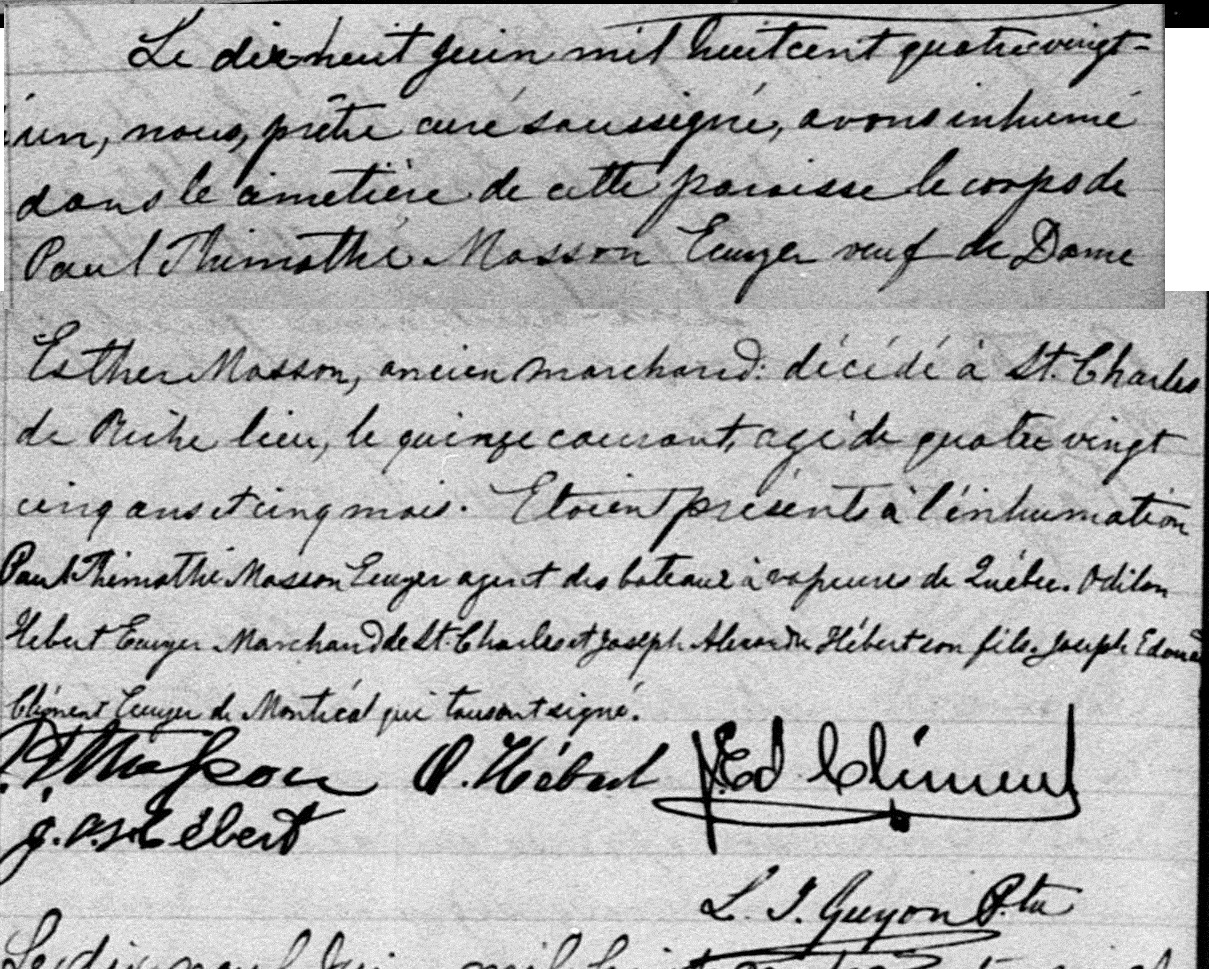 Le dix huit Juin mil huit cent quatre vingt-
un, nous, prêtre curé soussigné, avons inhumé
dans le cimetière de cette paroisse le corps de
Paul Thimothé Masson Ecuyer veuf de Dame
Esther Masson, ancien marchand: décédé à St. Charles
de Riche lieu, le quinze courant, agé de quatre vingt
cinq ans et cinq mois. Etaient présents à l'inhumation
Paul Thimothé Masson Ecuyer agent des bateaux à vapeures de Québec. Odilon
Hébert Ecuyer Marchand de St. Charles et Joseph Alexandre Hébert son fils. Joseph Edouard
Clément Ecuyer de Montréal qui tous ont signé.
P. T. Masson O. Hébert J. Ed Clément
J. A. Hébert
L. J. Guyon Ptre
Le dix neuf Juin mil huit